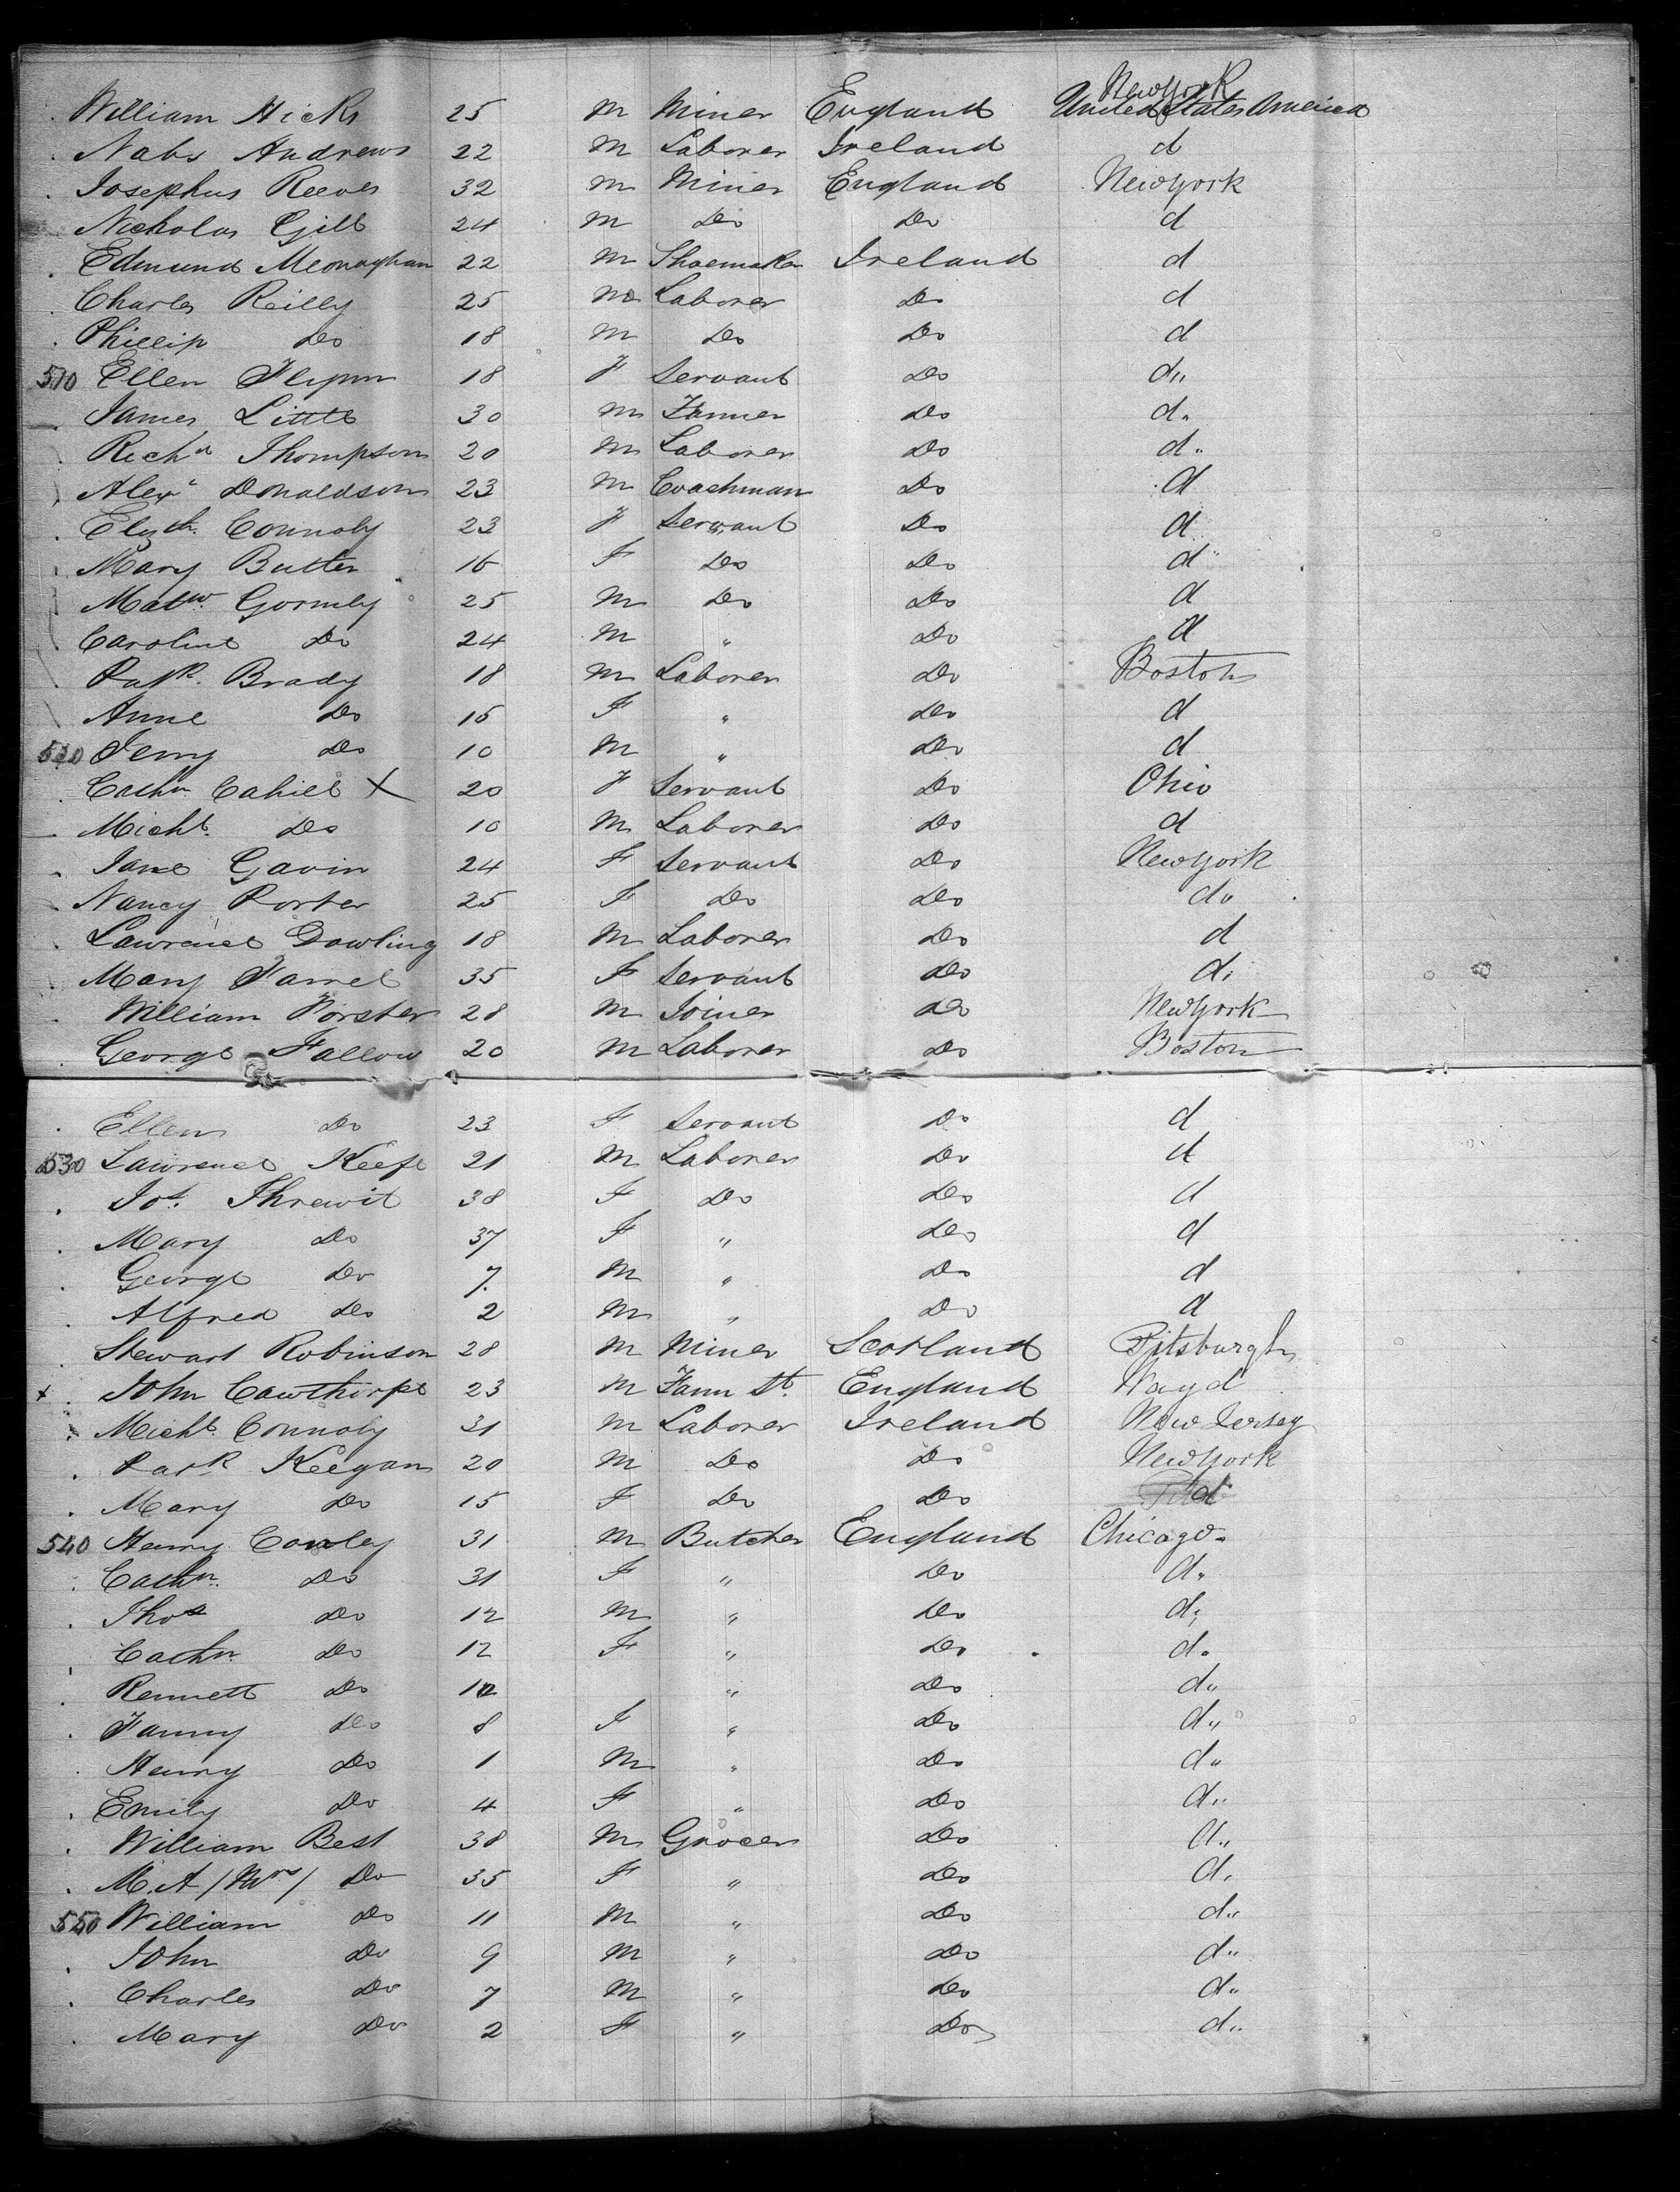 New York
William Hicks 25 M Miner England United States America
Nabs Andrews 22 M Laborer Ireland d
Josephus Reeves 32 M Miner England New York
Nicholas Gill 24 M Do Do d
Edmund Meonaghan 22 M Shoemaker Ireland d
Charles Reilly 25 M Laborer Do d
Phillip Do 18 M Do Do d
510 Ellen Flynn 18 F Servant Do d"
James Little 30 M Farmer Do d"
Richd Thompson 20 M Laborer Do d"
Alexr Donaldson 23 M Coachman Do d
Elizth. Connoly 23 F Servant Do d
Mary Butter 16 F Do Do d"
Matw. Gormly 25 M Do Do d
Caroline Do 24 M " Do d
Patk. Brady 18 M Laborer Do Boston
Anne Do 15 F " Do d
520 Jerry Do 10 M " Do d
Cathn. Cahill X 20 F Servant Do Ohio
Michl. Do 10 M Laborer Do d
Jane Gavin 24 F Servant Do New York
Nancy Porter 25 F Do Do d"
Lawrence Dowling 18 M Laborer Do d
Mary Farrel 35 F Servant Do d"
William Forster 28 M Joiner do New York
George Fallow 20 M Laborer Do Boston
Ellen Do 23 F Servant Do d
530 Lawrence Keefe 21 M Laborer Do d
Jos. Threwit 38 F Do Do d
Mary Do 37 F " Do d
George Do 7. M " Do d
Alfred Do 2 M " Do d
Stewart Robinson 28 M Miner Scotland Pitsburgh
x John Cawthorpe 23 M Farm St. England
Michl. Connoly 31 M Laborer Ireland New Jersey
Patk Keegan 20 M Do Do New York
Mary Do 15 F Do Do d
540 Henry Conley 31 M Butcher England Chicago"
Cathn. Do 31 F " Do d"
Thos Do 12 M " Do d"
Cathn. Do 12 F " Do d"
Rennett Do 10 " Do d"
Fanny Do 8 F " Do d"
Henry Do 1 M " Do d"
Emily Do 4 F " Do d"
William Best 38 M Grocer Do d"
M.A /Mrs/ Do 35 F " Do d"
550 William Do 11 M " Do d"
John Do 9 M " Do d"
Charles Do 7 M " Do d"
Mary Do 2 F " Do d"